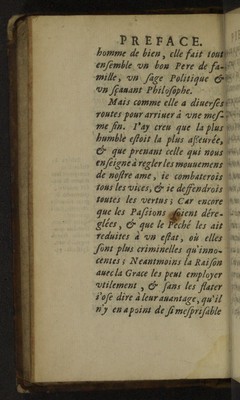 PREFACE.
homme de bien, elle fait tout
ensemble vn bon Pere de fa-
mille, vn sage Politique &
vn sçauant Philosophe.
Mais comme elle a diuerses
routes pour arriuer à vne mes-
me fin. I'ay creu que la plus
humble estoit la plus asseurée,
& que prenant celle qui nous
enseigne à regler les mouuemens
de nostre ame, ie combaterois
tous les vices, & ie deffendrois
toutes les vertus; Car encore
que les Passions soient déré-
glées, & que le Peché les ait
reduites à vn estat, où elles
sont plus criminelles qu'inno-
centes; Neantmoins la Raison
auec la Grace les peut employer
vtilement, & sans les flater
i'ose dire à leur auantage, qu'il
n'y en a point de si mesprisable